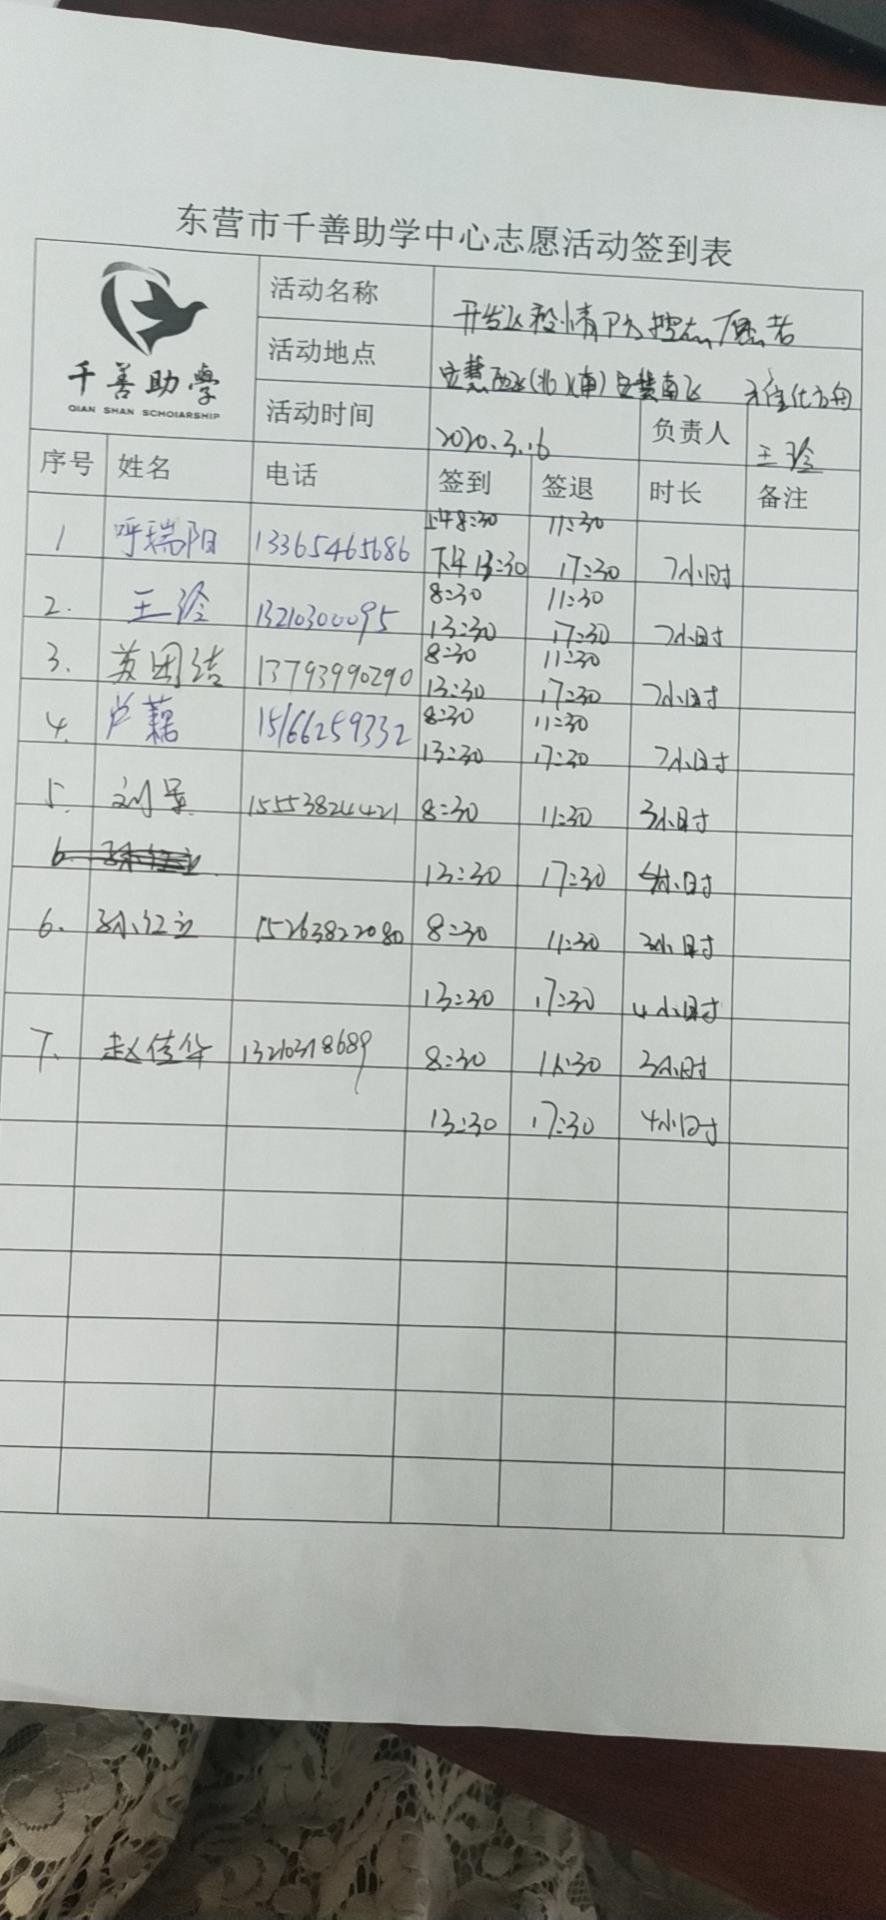 东营市千善助学中心志愿活动签到表
千善助学
QIAN SHAN SCHOIARSHIP
活动名称 开发区疫情防控志愿者
活动地点 安慧西区(北)(南)安慧南区
活动时间 2020.3.16 负责人 王玲
序号 姓名 电话 签到 签退 时长 备注
上午8:30 11:30
1 呼瑞阳 13365465686 下午13:30 17:30 7小时
8:30 11:30
2. 王玲 13210300095 13:30 17:30 7小时
8:30 11:30
3. 苏团结 13793990290 13:30 17:30 7小时
8:30 11:30
4. 卢藕 15166259332 13:30 17:30 7小时
5. 刘 15553824421 8:30 11:30 3小时
6. 13:30 17:30 4小时
6. 孙红 15263822080 8:30 11:30 3小时
13:30 17:30 4小时
7. 赵佳华 13210318689 8:30 11:30 3小时
13:30 17:30 4小时